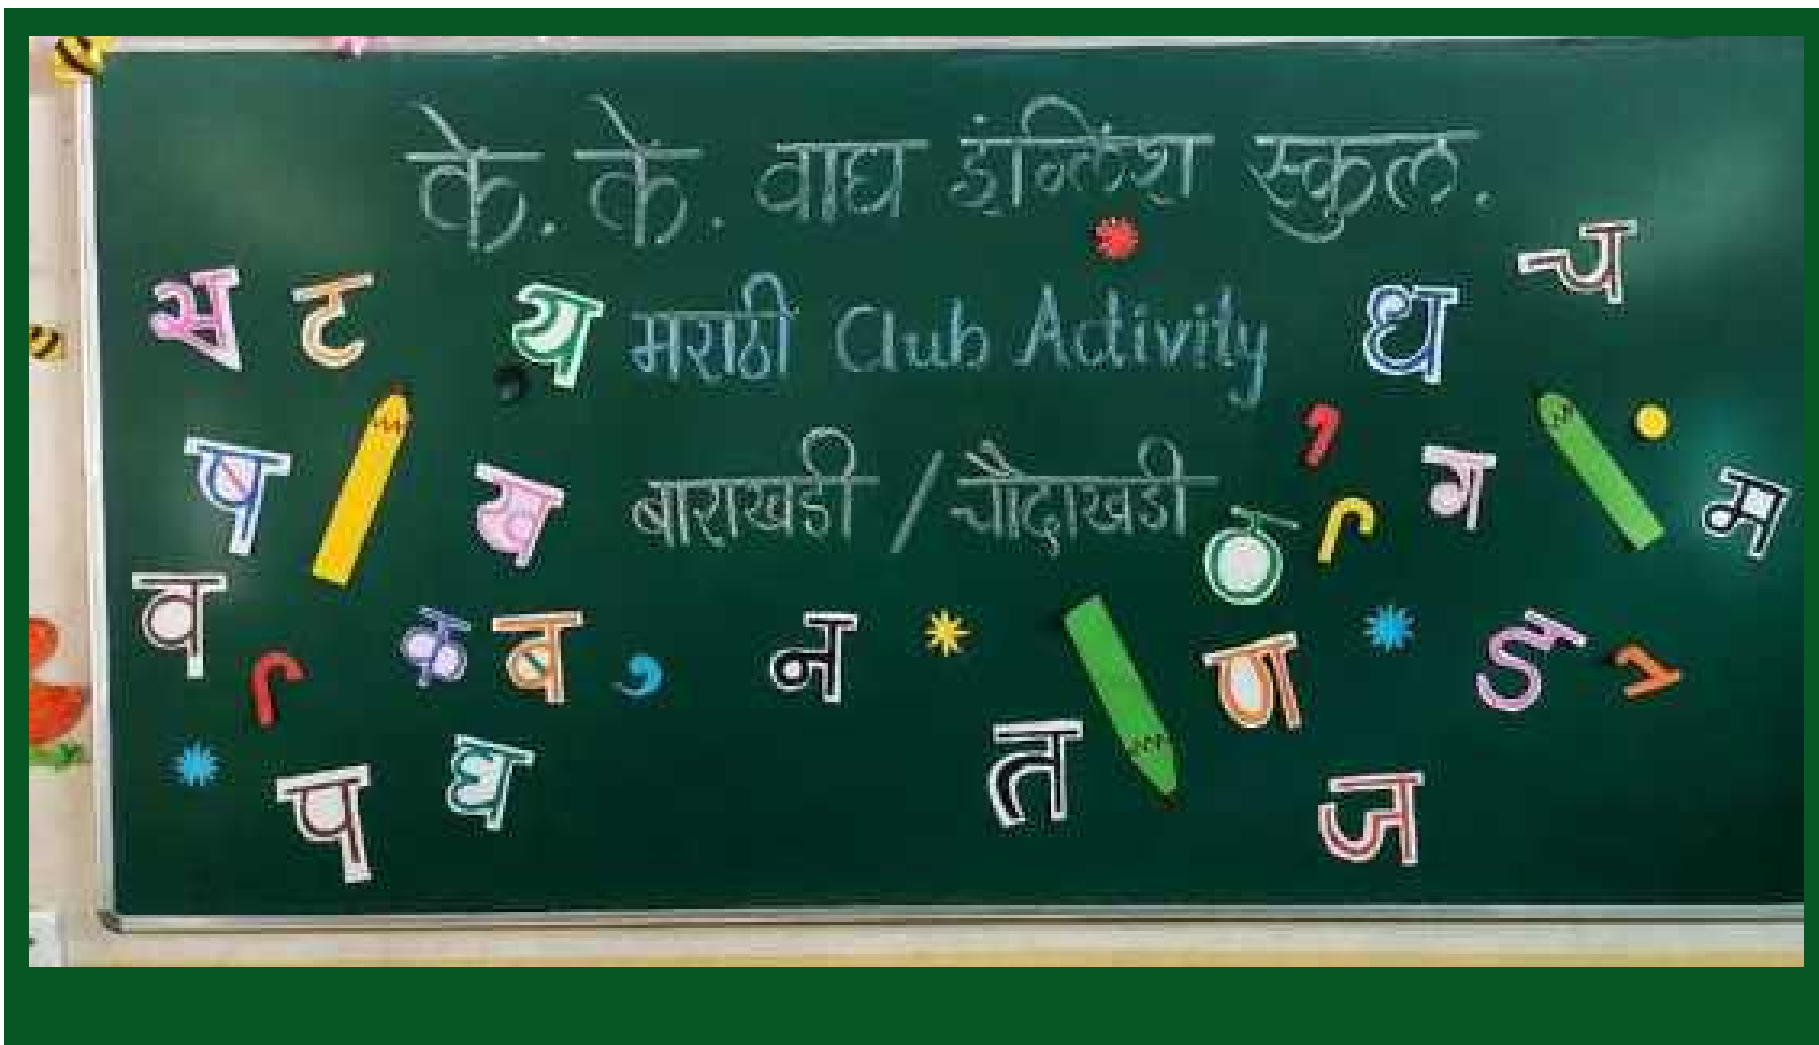 के. के. वाघ इंग्लिश स्कुल.
मराठी Club Activity
बाराखडी / चौदाखडी
भ ट य ध च
ष ख ग म
व फ ब न ठ ण ड
प घ त ज